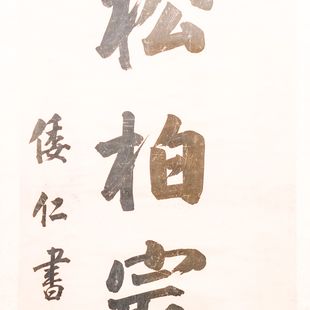 松柏宗
倭仁書